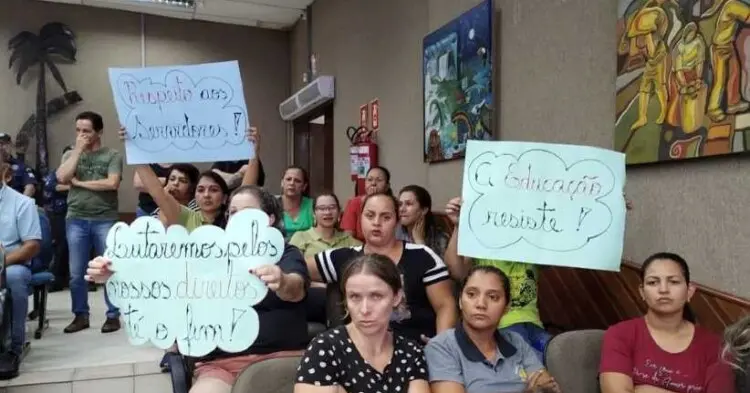 Respeito aos
Servidores!
A Educação
resiste!
Lutaremos pelos
nossos direitos
até o fim!